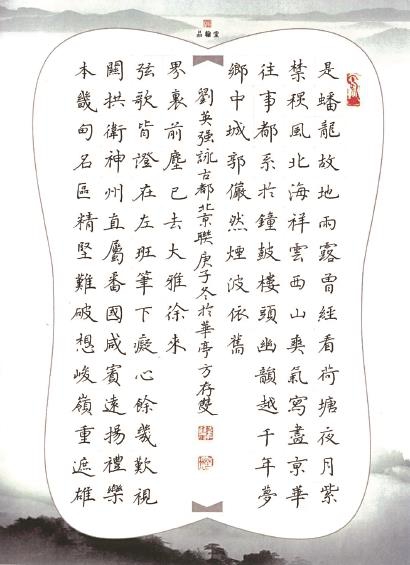 品翰堂
是蟠龍故地雨露曾經看荷塘夜月紫
禁稷風北海祥雲西山爽氣寫盡京華
往事都系於鐘鼓樓頭幽韻越千年夢
鄉中城郭儼然煙波依舊
本畿甸名區精堅難破想峻嶺重遮雄
關拱衛神州直屬番國咸賓遠揚禮樂
弦歌皆證在左班筆下癡心餘幾歎視
界裏前塵已去大雅徐來
劉英强詠古都北京聯庚子冬於華亭方存雙